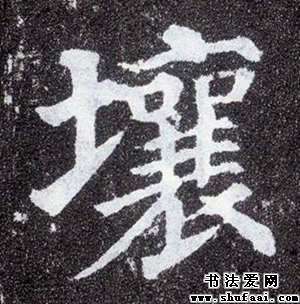 壤
书法爱网
www.shufaai.com